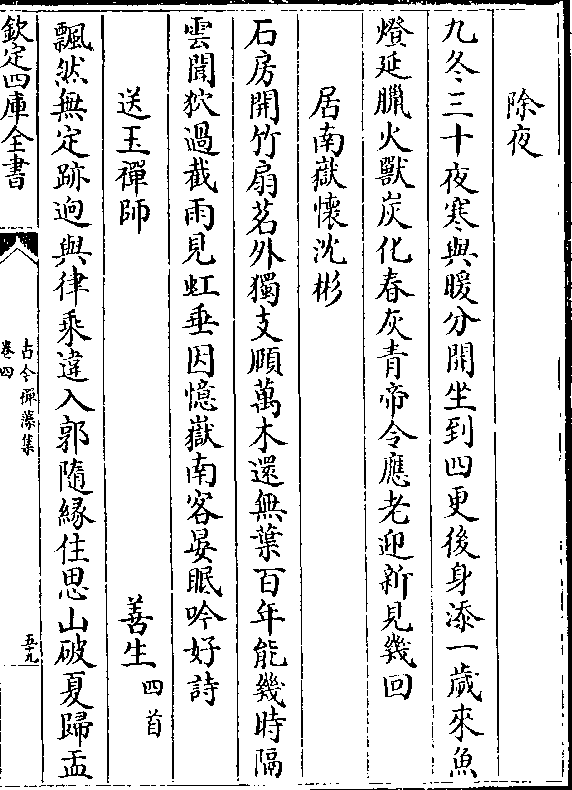 除夜
九冬三十夜寒與暖分開坐到四更後身添一歲來魚
燈延臘火獸炭化春灰青帝令應老迎新見幾回
居南嶽懷沈彬
石房開竹扇茗外獨支頤萬木還無葉百年能幾時隔
雲聞狖過截雨見虹垂因憶嶽南客晏眠吟好詩
送玉禪師 善生四首
飄然無定跡逈與律乘違入郭隨緣住思山破夏歸盂
欽定四庫全書
古今禪藻集
卷四
五九